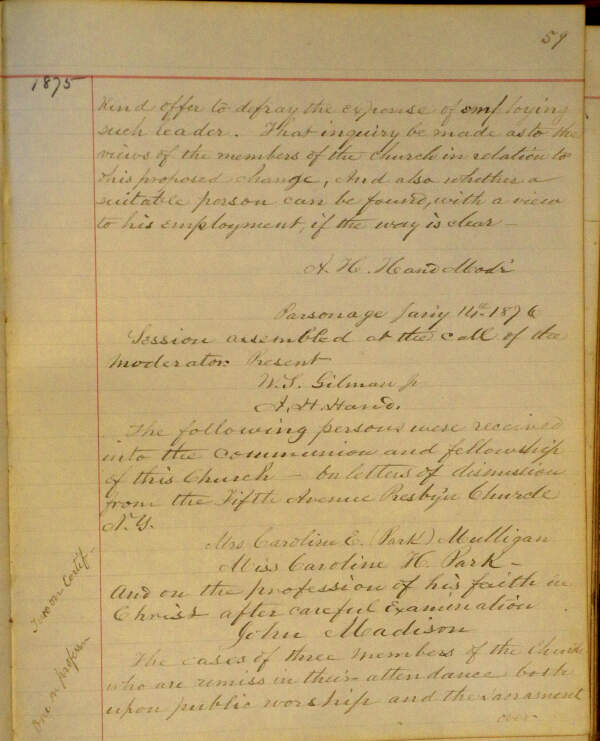 59
1875
kind offer to defray the expense of employing
such leader. That inquiry be made as to the
views of the members of the church in relation to
this proposed change, And also whether a
suitable person can be found, with a view
to his employment, if the way is clear —
A. H. Hand Modr
Parsonage Jan'y 14th. 1876
Session assembled at the call of the
Moderator. Present
W. S. Gilman Jr
A. H. Hand.
The following persons were received
into the communion and fellowship
of this Church — On letters of dismission
from the Fifth Avenue Presby'n Church
N.Y.
Mrs Caroline E. (Park) Mulligan
Miss Caroline H. Park —
And on the profession of his faith in
Christ after careful Examination
John Madison
The cases of three members of the Church
who are remiss in their attendance both
upon public worship and the Sacrament
over
Two on Certif.
One on profession